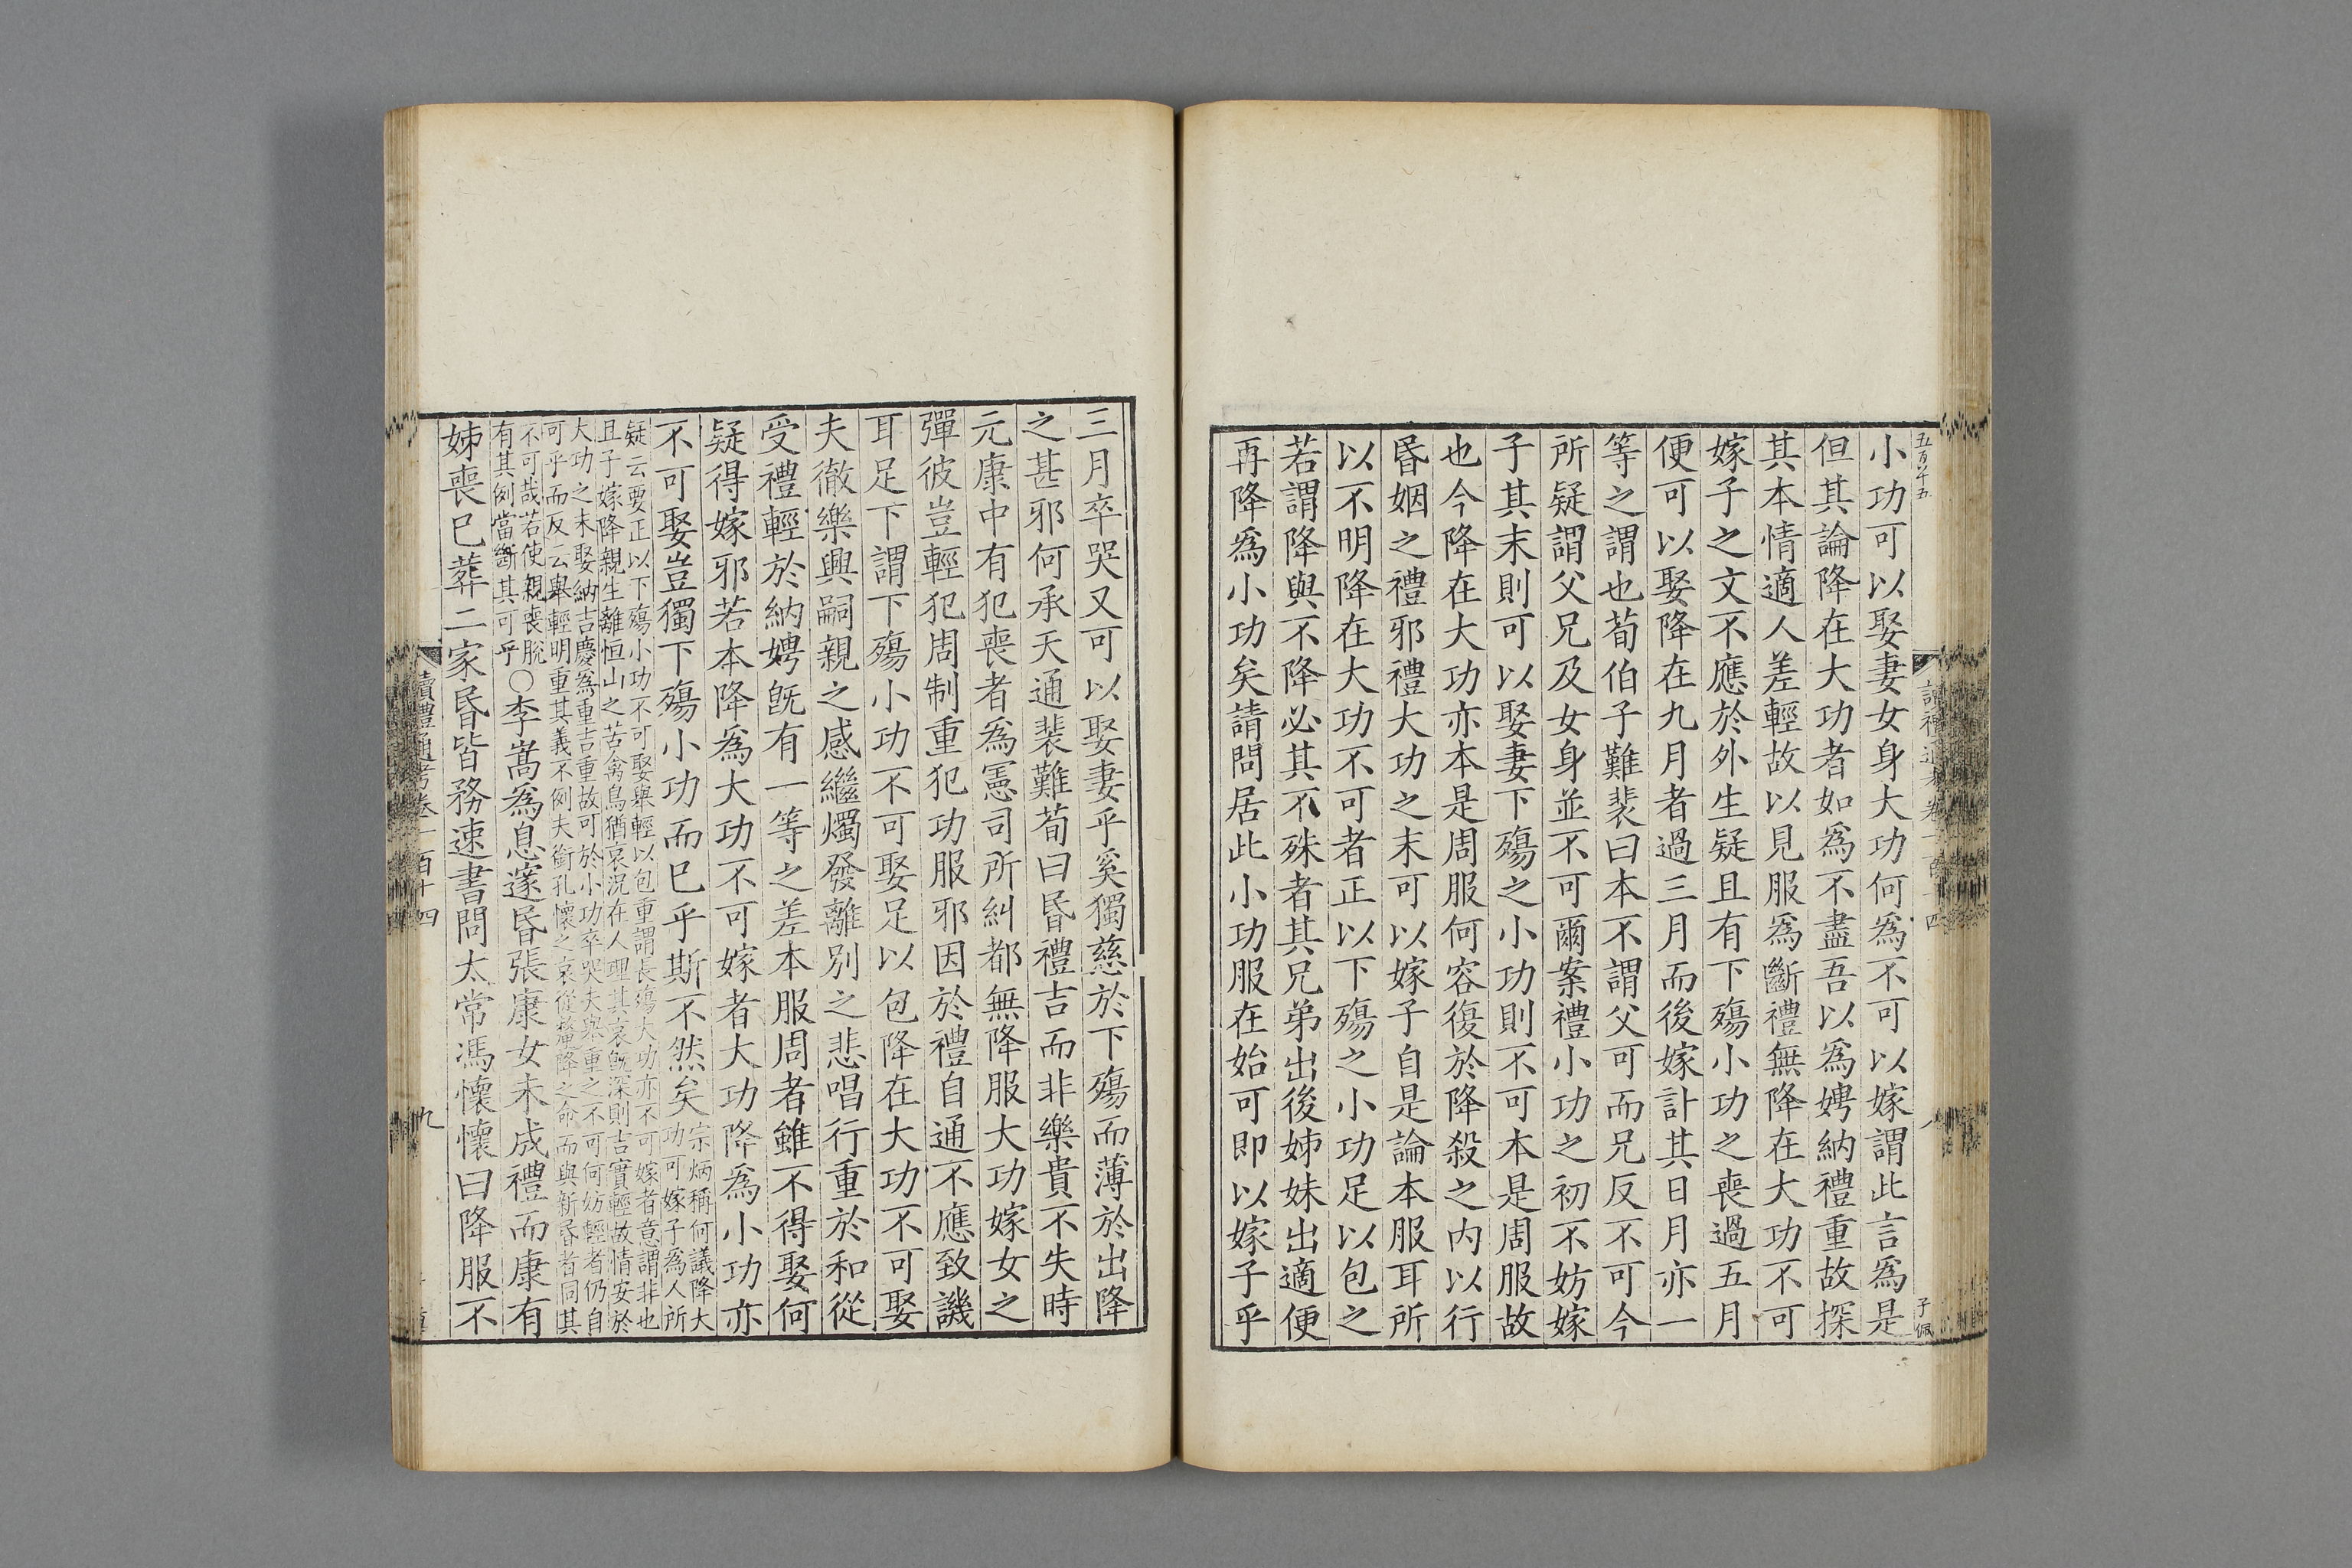 小功可以娶妻女身大功何爲不可以嫁謂此言爲是
但其論降在大功者如爲不盡吾以爲娉納禮重故探
其本情適人差輕故以見服爲斷禮無降在大功不可
嫁子之文不應於外生疑且有下殤小功之喪過五月
便可以娶降在九月者過三月而後嫁計其日月亦一
等之謂也荀伯子難裴曰本不謂父可而兄反不可今
所疑謂父兄及女身並不可爾案禮小功之初不妨嫁
子其末則可以娶妻下殤之小功則不可本是周服故
也今降在大功亦本是周服何容復於降殺之内以行
昬姻之禮邪禮大功之末可以嫁子自是論本服耳所
以不明降在大功不可者正以下殤之小功足以包之
若謂降與不降必其不殊者其兄弟出後姊妹出適便
再降爲小功矣請問居此小功服在始可即以嫁子乎
三月卒哭又可以娶妻乎奚獨慈於下殤而薄於出降
之甚邪何承天通裴難荀曰昬禮吉而非樂貴不失時
元康中有犯喪者爲憲司所糾都無降服大功嫁女之
彈彼豈輕犯周制重犯功服邪因於禮自通不應致譏
耳足下謂下殤小功不可娶足以包降在大功不可娶
夫徹樂興嗣親之感繼燭發離別之悲唱行重於和從
受禮輕於納娉旣有一等之差本服周者雖不得娶何
疑得嫁邪若本降爲大功不可嫁者大功降爲小功亦
不可娶豈獨下殤小功而巳乎斯不然矣
宗炳稱何議降大
功可嫁子爲人所
疑云要正以下殤小功不可娶舉輕以包重謂長殤大功亦不可嫁者意謂非也
且子嫁降親生離恒山之苦禽鳥猶哀況在人理其哀旣深則吉實輕故情安於
大功之末娶納吉慶爲重吉重故可於小功卒哭夫舉重之不可何妨輕者仍自
可乎而反云舉輕明重其義不例夫銜孔懷之哀從降之命而與新昬者同其
不可哉若使親喪脫
有其例當斷其可乎
○李嵩爲息邃昬張康女未成禮而康有
姊喪巳葬二家昬皆務速書問太常馮懷懷曰降服不
讀禮通考卷一百十四
九